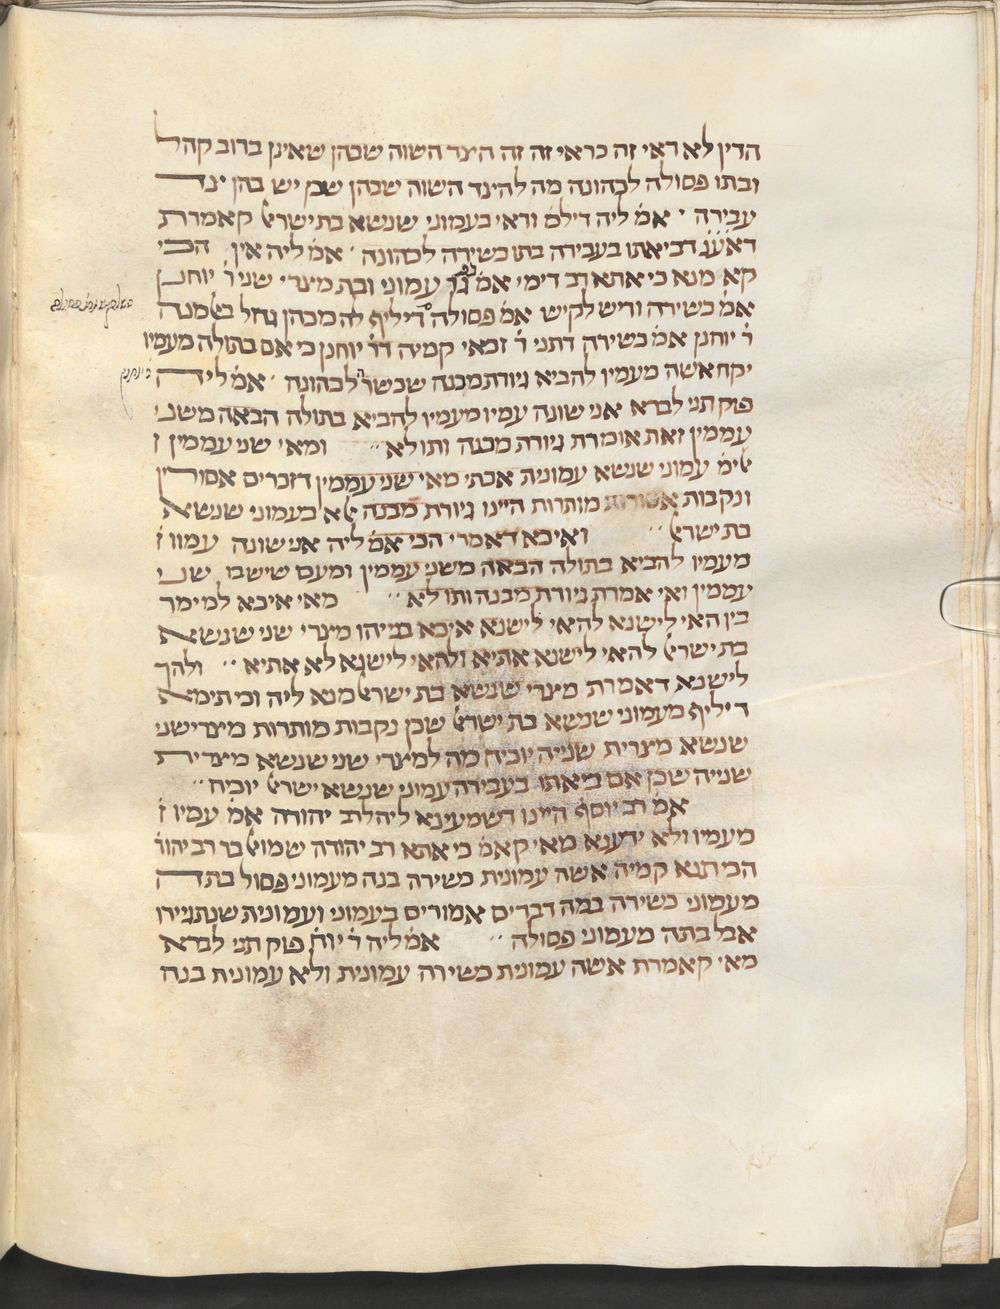 הדין לא ראי זה כראי זה זה הצד השוה שבהן שאינן ברוב קהל
ובתו פסולה לכהונה מה להצד השוה שבהן שכן יש בהן צד
עבירה ׳ אמ׳ ליה דילמ׳ ודאי בעמוני שנשא בת ישר׳ קאמרת
דאע״ג דביאתו בעבירה בתו כשירה לכהונה ׳ אמ׳ ליה אין הכי
קא מנא כי אתא רב דימי אמ׳ גר עמוני ובת מצרי שני ר׳ יוחנן
אמ׳ כשירה וריש לקיש אמ׳ פסולה דיליף לה מכהן גדול באלמנה
ר׳ יוחנן אמ׳ כשירה דתני ר׳ זכאי קמיה דר׳ יוחנן כי אם בתולה מעמיו
יקח אשה מעמיו להביא גיורת מבנה שכשר׳ לכהונה ׳ אמ׳ ליה
פוק תני לברא אני שונה עמיו מעמיו להביא בתולה הבאה משני
עממין זאת אומרת גיורת מבנה ותו לא ׳׳ ומאי שני עממין
אילימ׳ עמוני שנשא עמונית אכתי מאי שני עממין דזכרים אסורין
ונקבות מותרות היינו גיורת מבנה אלא בעמוני שנשא
בת ישר׳ ׳׳ ואיכא דאמרי הכי אמ׳ ליה אני שונה עמיו
מעמיו להביא בתולה הבאה משני עממין ומעם שיש בו שני
עממין ואי אמרת גיורת מבנה ותו לא ׳׳ מאי איכא למימר
בין האי לישנא להאי לישנא איכא בניהו מצרי שני שנשא
בת ישר׳ להאי לישנא אתיא ולהאי לישנא לא אתיא ׳׳ ולהך
לישנא דאמרת מצרי שנשא בת ישר׳ מנא ליה וכי תימא
דיליף מעמוני שנשא בת ישר׳ שכן נקבות מותרות מצרי שני
שנשא מצרית שנייה יוכיח מה למצרי שני שנשא מצרית
שנייה שכן אם ביאתו בעבירה עמוני שנשא ישר׳ יוכיח ׳׳
אמ׳ רב יוסף היינו דשמעינא ליה לרב יהודה אמ׳ עמיו
מעמיו ולא ידענא מאי קאמ׳ כי אתא רב יהודה שמואל בר רב יהוד׳
הכי תנא קמיה אשה עמונית כשירה בנה מעמוני פסול בתה
מעמוני כשירה במה דברים אמורים בעמוני ועמונית שנתגיירו
אבל בתה מעמוני פסולה ׳׳ אמ׳ ליה ר׳ יוח׳ פוק תני לברא
מאי קאמרת אשה עמונית כשירה עמונית ולא עמונית בנה